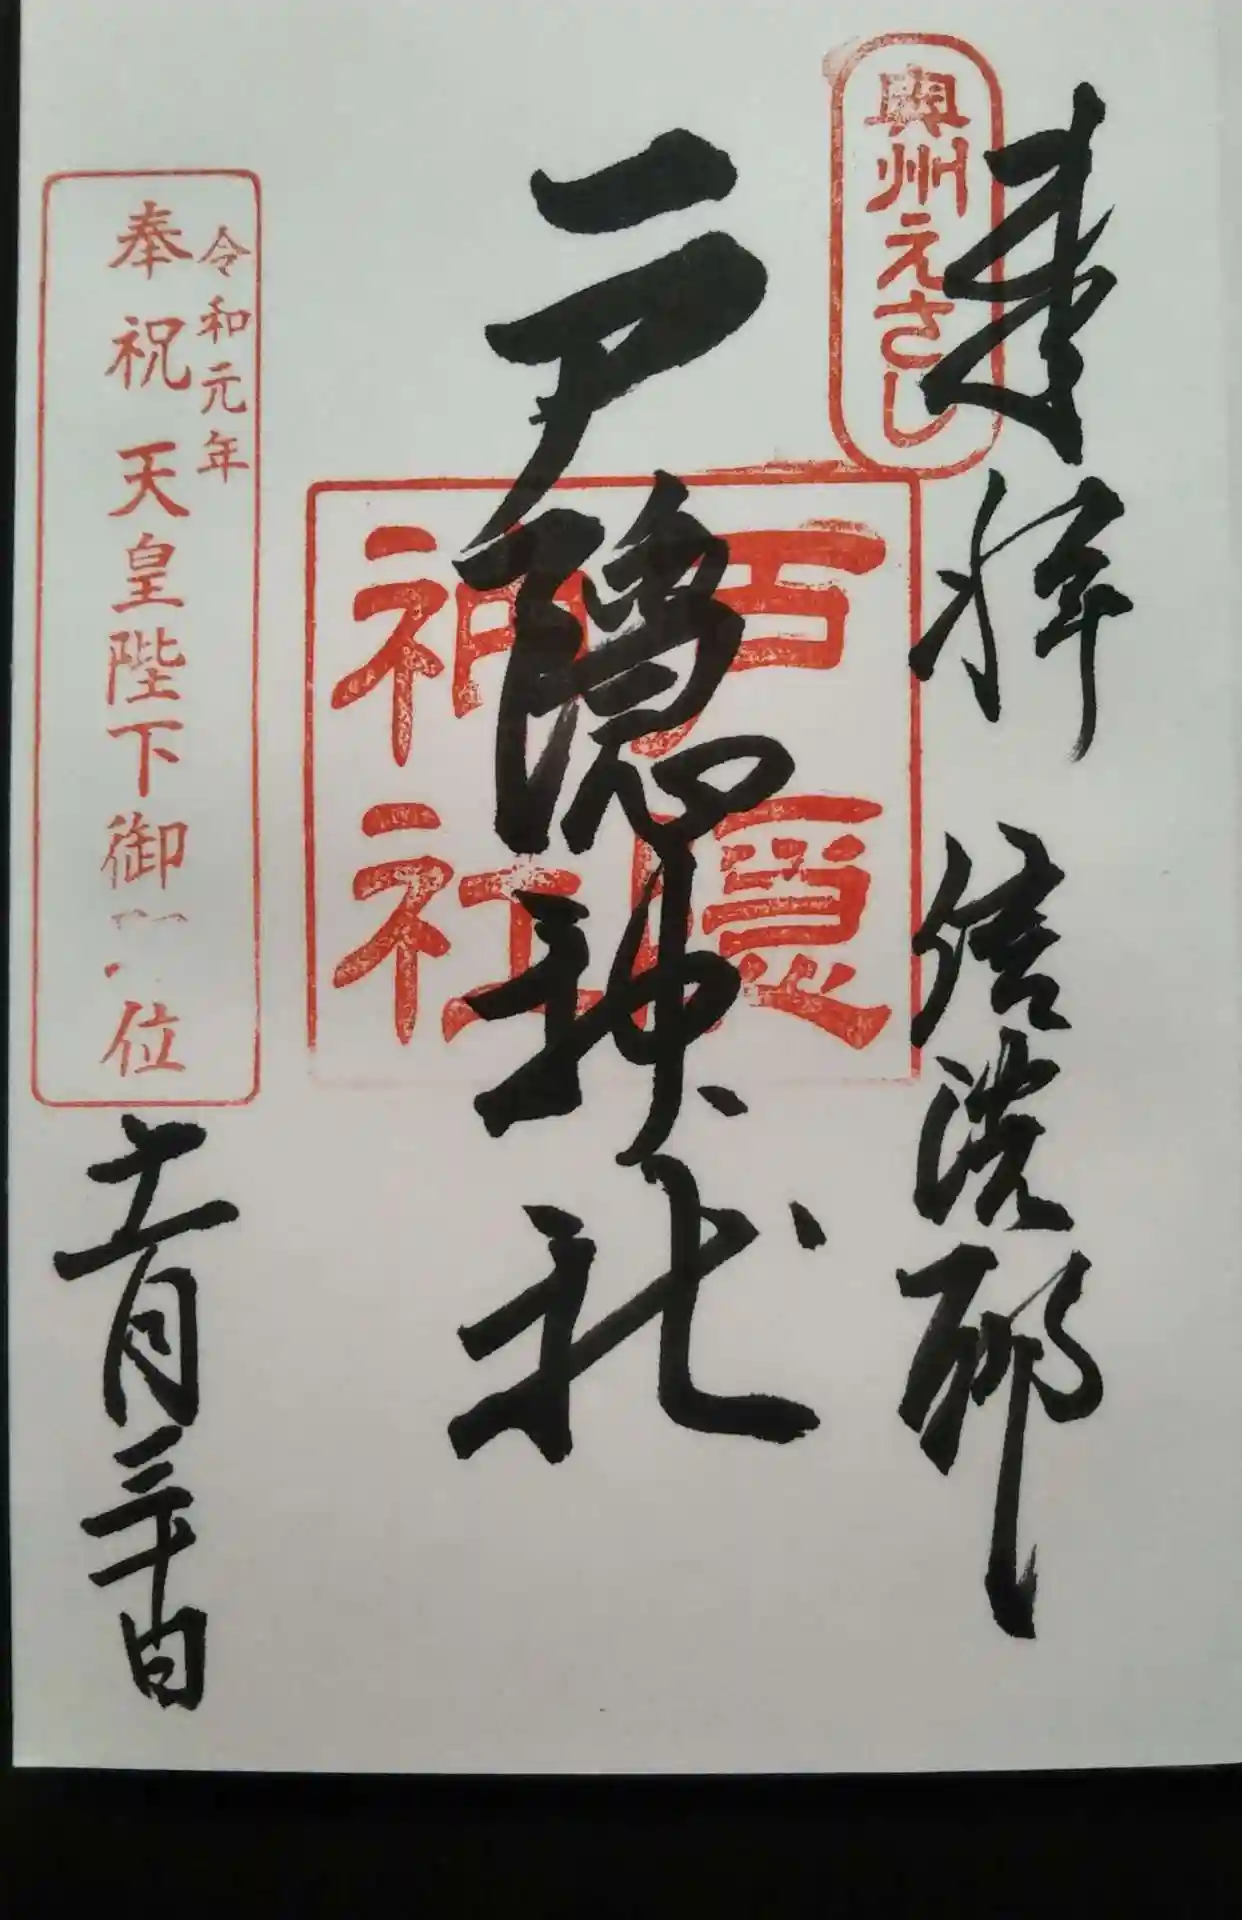 奉拝 信濃那
奥州えさし
戸隠神社
戸隠
神社
令和元年
奉祝天皇陛下御位
十一月三十日